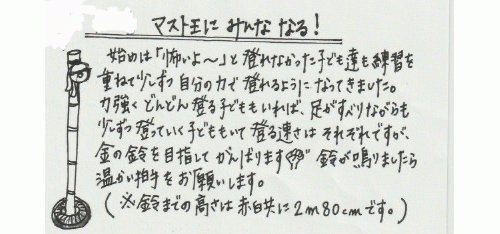 マスト王に みんな なる!
始めは「怖いよ〜」と登れなかった子ども達も練習を
重ねて少しずつ自分の力で登れるようになってきました。
力強くどんどん登る子どももいれば、足がすべりながらも
少しずつ登っていく子どももいて登る速さはそれぞれですが、
金の鈴を目指してがんばります 鈴が鳴りましたら
温かい拍手をお願いします。
(※鈴までの高さは赤白共に2m80cmです。)